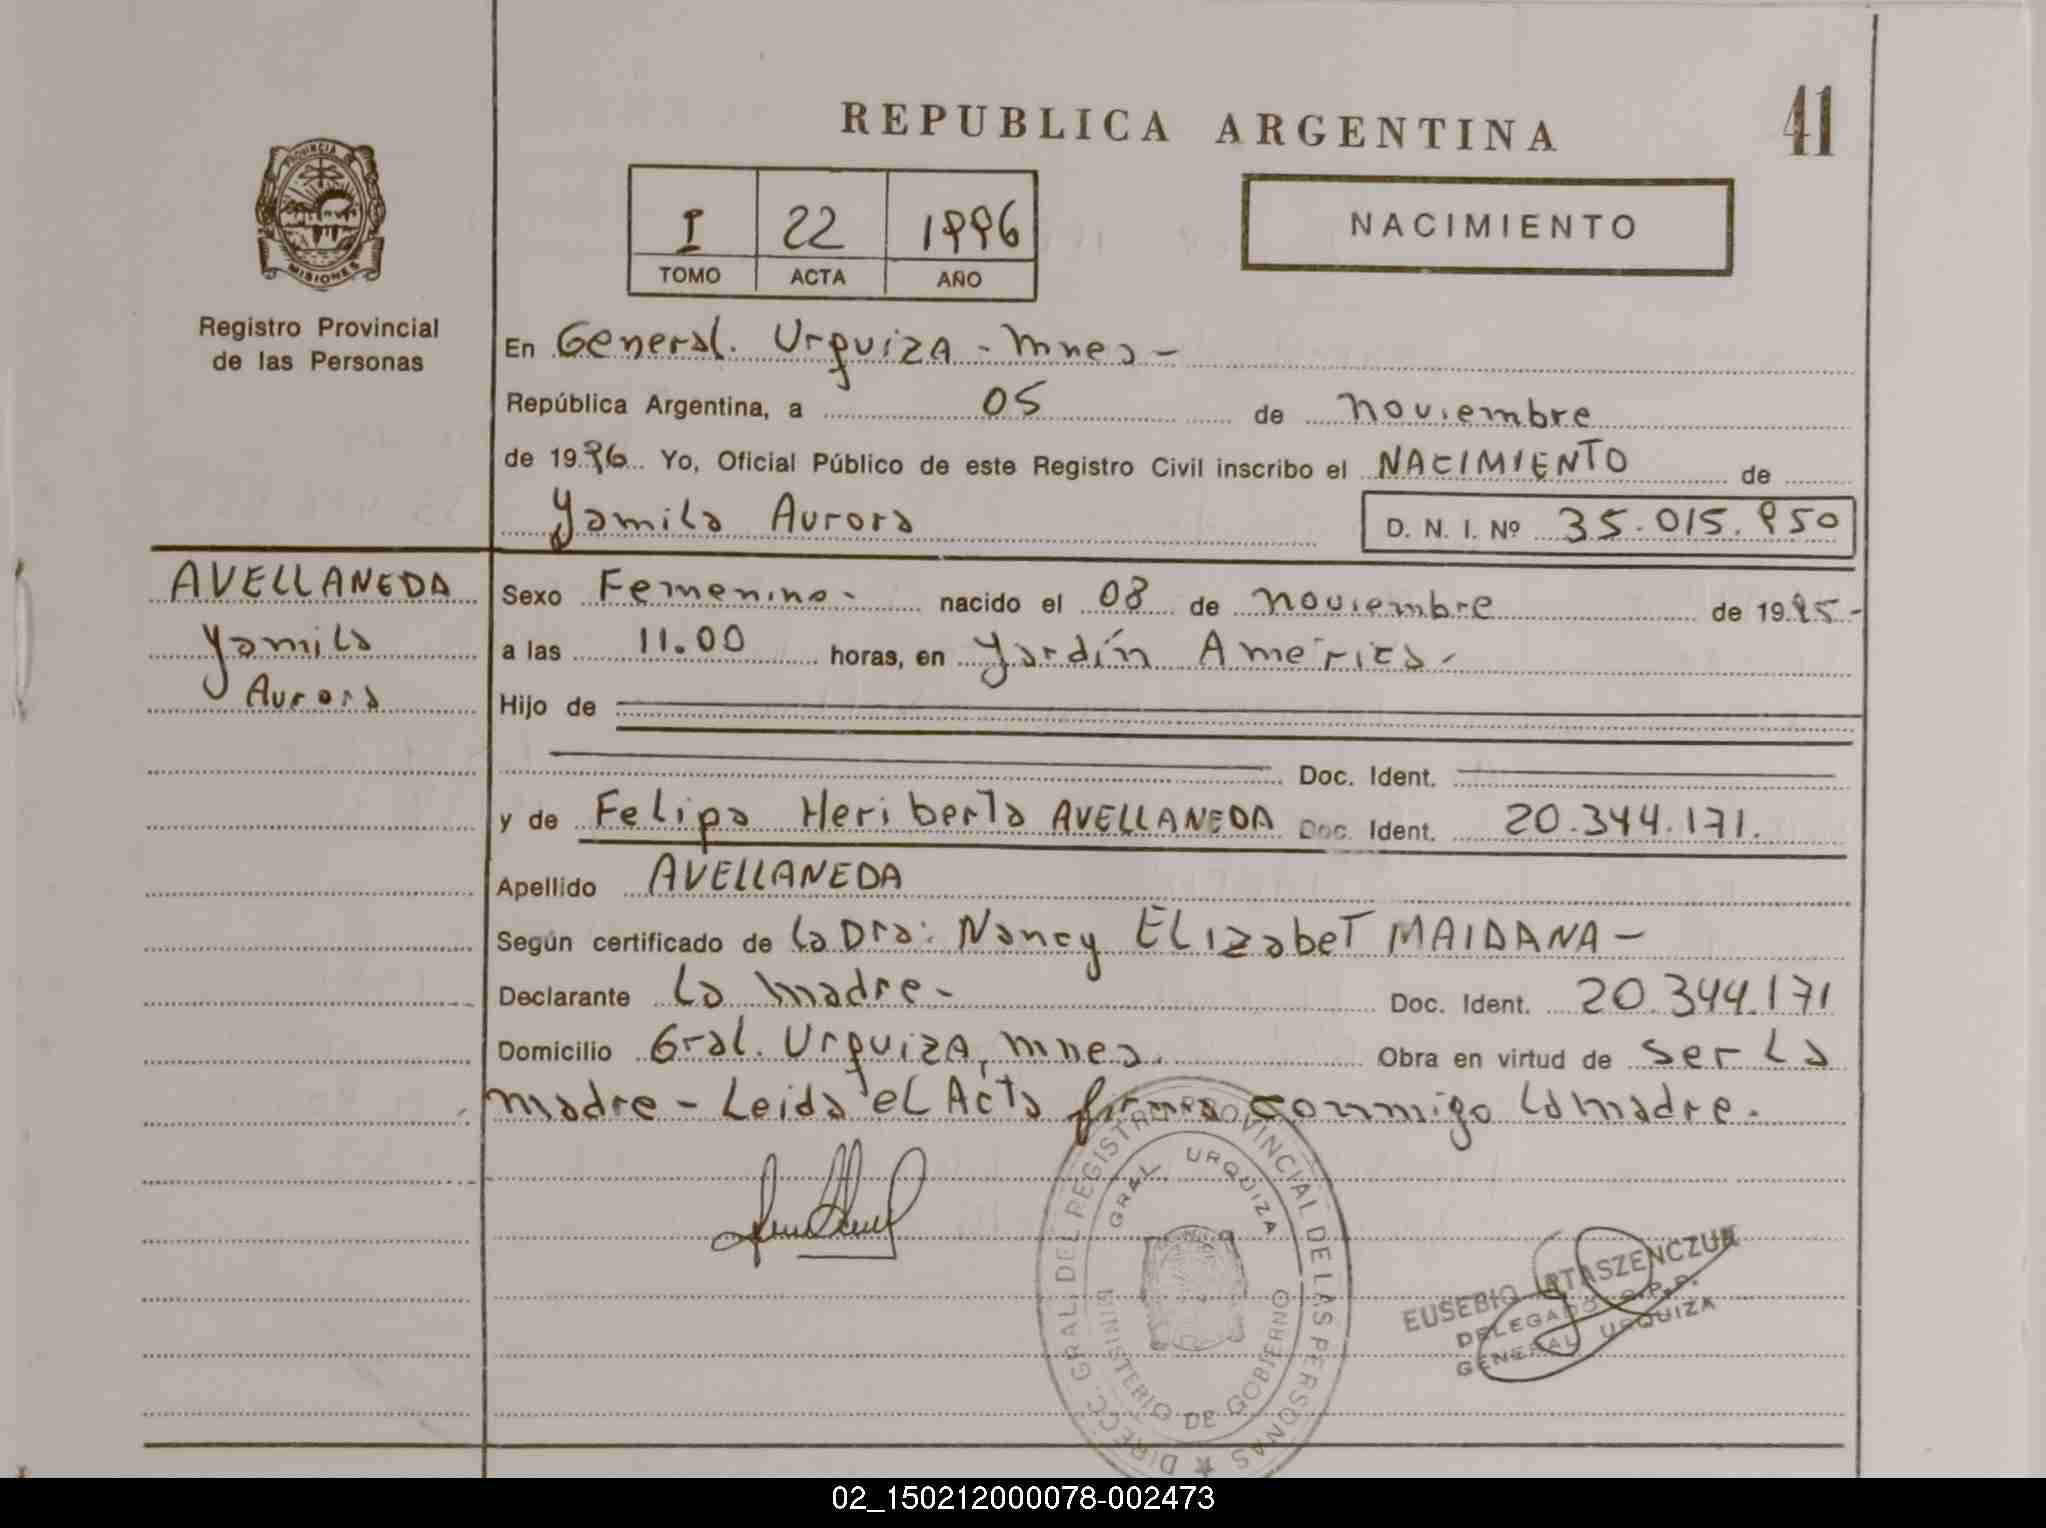 REPUBLICA ARGENTINA
41
PROVINCIA DE
MISIONES
Registro Provincial
de las Personas
I 22 1996
TOMO ACTA AÑO
NACIMIENTO
En General. Urquiza - mnes -
República Argentina, a 05 de noviembre
de 1996 Yo, Oficial Público de este Registro Civil inscribo el NACIMIENTO de
Yamila Aurora D. N. I. Nº 35.015.950
AVELLANEDA
Yamila
Aurora
Sexo Femenino - nacido el 08 de noviembre de 1995 -
a las 11.00 horas, en Jardín América -
Hijo de
Doc. Ident.
y de Felipa Heriberta AVELLANEDA Doc. Ident. 20.344.171.
Apellido AVELLANEDA
Según certificado de La Dra: Nancy ELizabeT MAIDANA -
Declarante La madre - Doc. Ident. 20.344.171
Domicilio Gral. Urquiza, mnes. Obra en virtud de ser La
madre - Leida el Acta firma conmigo La madre.
DIRECC. GRAL. DEL REGISTRO PROVINCIAL DE LAS PERSONAS
GRAL. URQUIZA
MINISTERIO DE GOBIERNO
EUSEBIO PTASZENCZUK
DELEGADO R.P.P.
GENERAL URQUIZA
02_150212000078-002473